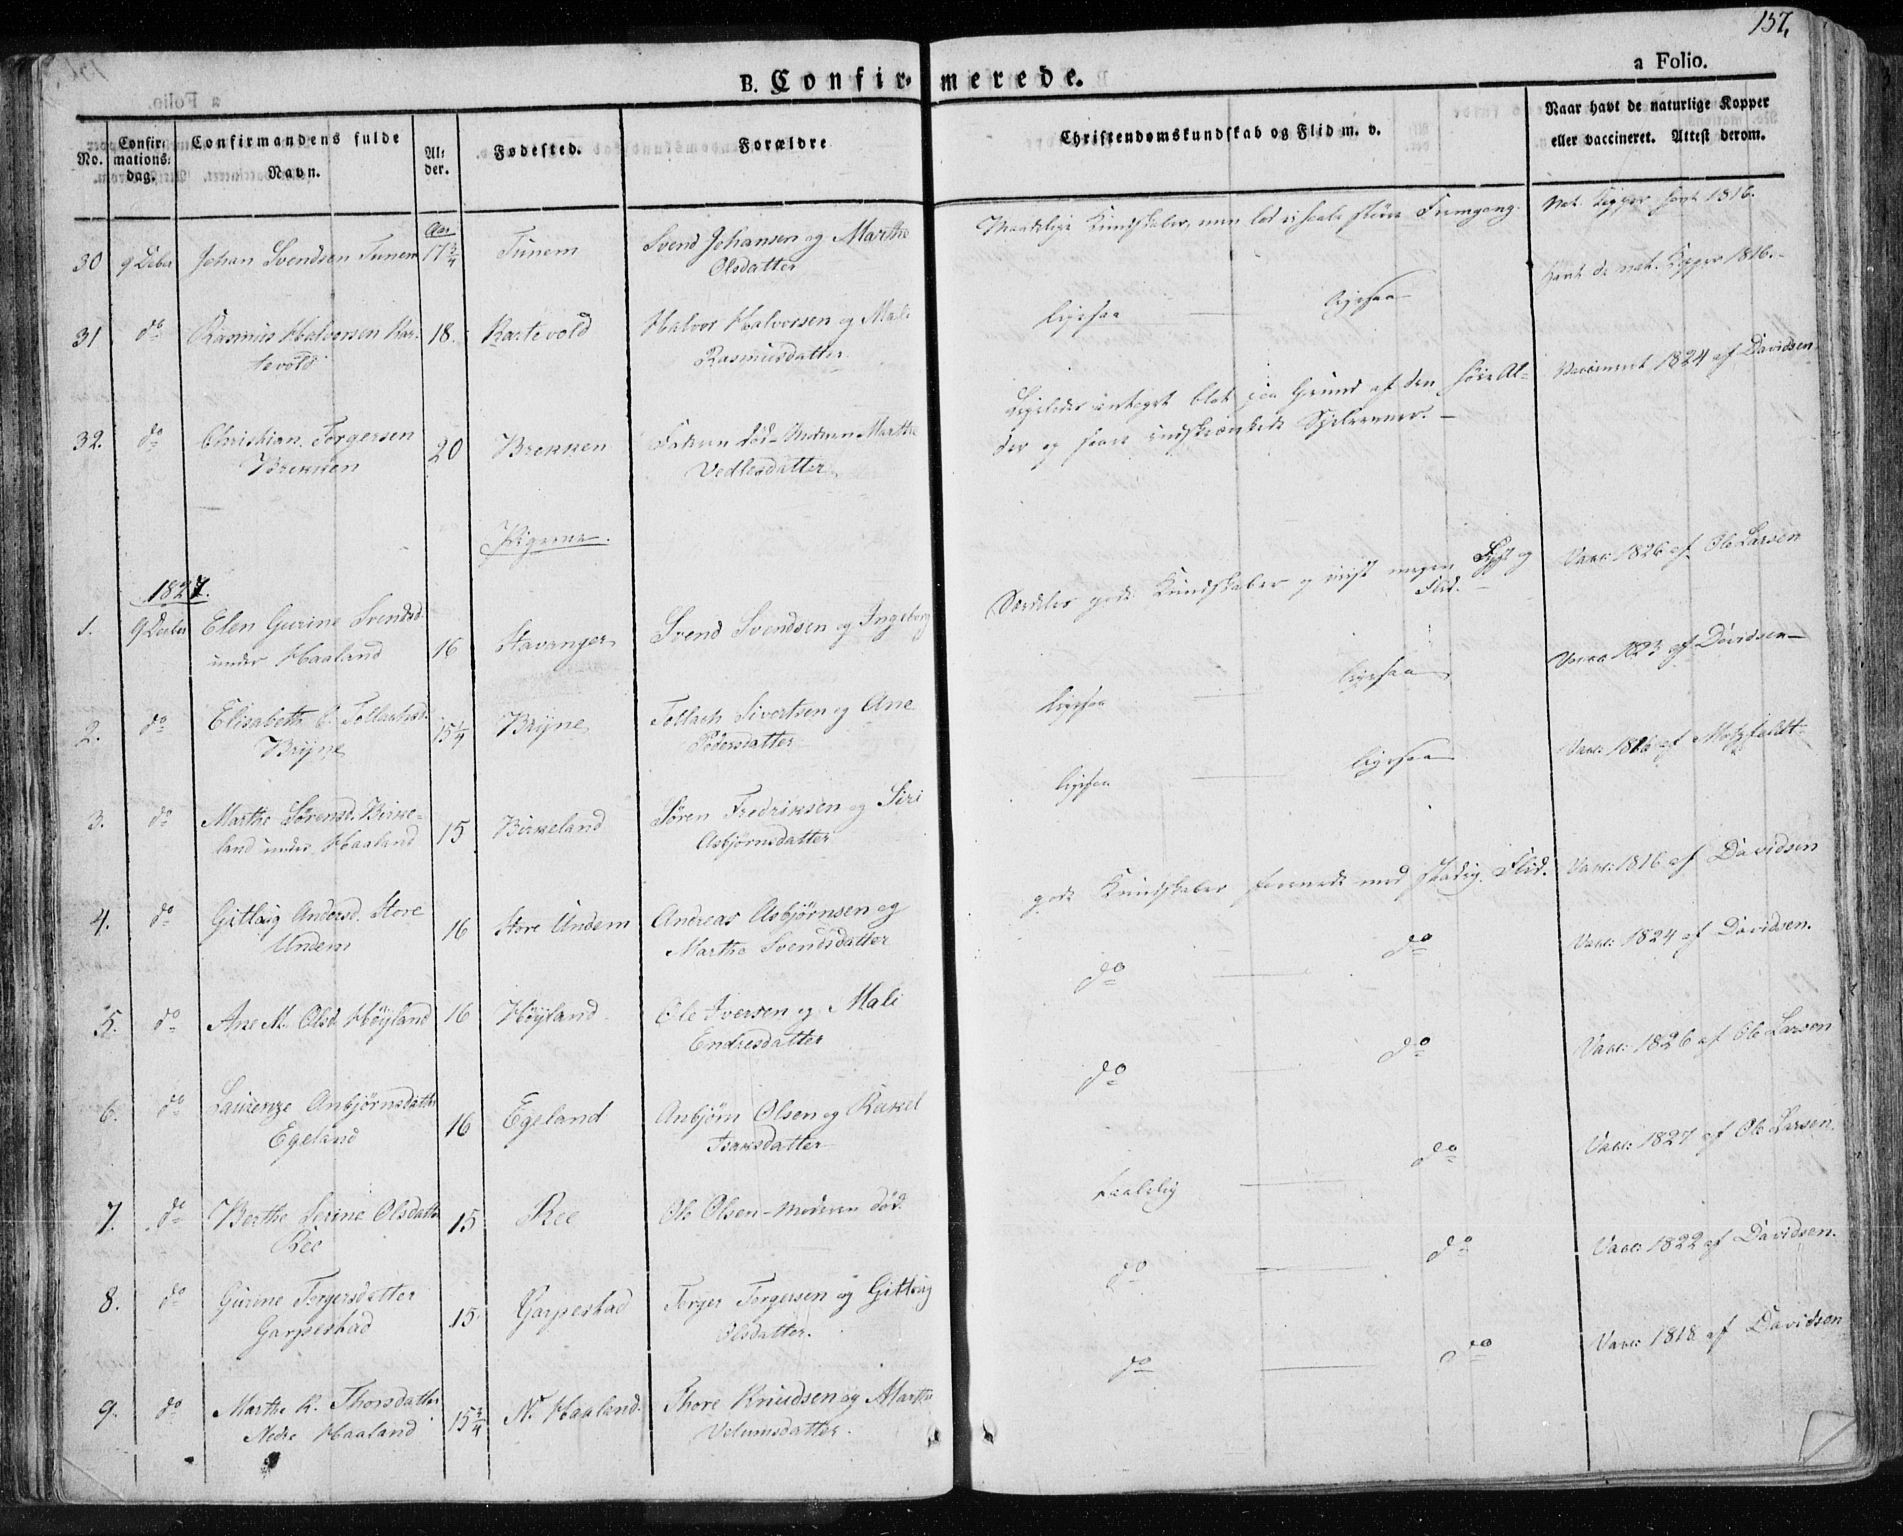 157.
a Folio.
B. Confirmerede.
No.
Confirmations: dag.
Confirmandens fulde Navn.
Alder.
Fødested.
Forældre
Christendomskundskab og Flid m. v.
Naar havt de naturlige Kopper eller vaccineret. Attest derom.
Aar
30 9 Decbr Johan Svendsen Tunem 17 3/4 Tunem Svend Johansen og Marthe
Olsdatter
Maadelige Kundskaber, men lod ei haabe større Fremgang. Nat. Kopper havt 1816.
31 do Rasmus Halvorsen Kar- 18. Kartevold Halvor Halvorsen og Mali
tevold Rasmusdatter
ligesaa ligesaa havt de nat. Kopper 1816.
32. do Christian Torgersen 20 Brekken Faderen død - Moderen Marthe
Brekken Vedlesdatter
Ligeledes antaget blot paa Grund af den høie Al-
der og saare indskrænkede Sjelevner. Vaccineret 1824 af Davidsen
Pigerne.
1827.
1. 9 Decbr Elen Gurine Svendsd. 16 Stavanger Svend Svendsen og Ingeborg
under Haaland
Særdeles gode Kundskaber og viist megen Lyst og
Flid. Vacc: 1826 af Ole Larsen
2. do Elisabeth Tollachsd. 15 1/4 Bryne Tollach Sivertsen og Ane
Bryne Pedersdatter
ligesaa ligesaa Vacc 1823 af Davidsen
3. do Marthe Sørensd. Birke- 15 Birkeland Søren Fredriksen og Siri
land under Haaland Asbjørnsdatter
ligesaa ligesaa Vacc: 1816 af Motzfeldt
4. do Gitlaug Andersd. Store 16 Store Undem Andreas Asbjørnsen og
Undem Marthe Svendsdatter
gode Kundskaber forenede med stadig Flid. Vacc: 1816 af Davidsen
5. do Ane M. Olsd. Høyland 16 Høyland Ole Iversen og Mali
Endresdatter
do do Vacc: 1824 af Davidsen.
6. do Laurenze Anbjørnsdatter 16 Egeland Anbjørn Olsen og Rakel
Egeland Isaksdatter
do do Vacc: 1826 af Ole Larsen
7. do Berthe Serine Olsdatter 15 Ree Ole Olsen - Moderen død.
Ree
taalelig do Vacc: 1827 af Ole Larsen.
8. do Gurine Torgersdatter 15 Garpestad Torger Torgersen og Gitlaug
Garpestad Olsdatter.
do do Vacc: 1822 af Davidsen.
9. do Marthe K. Thorsdatter 15 3/4 N. Haaland. Thore Knudsen og Marthe
Nedre Haaland Velumsdatter.
do do Vacc: 1818 af Davidsen